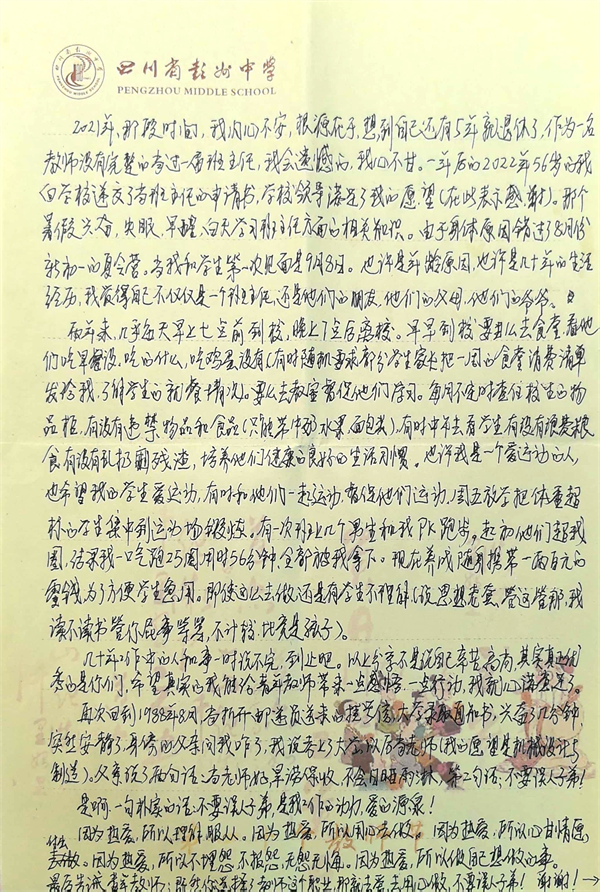 四川省彭州中学
PENGZHOU MIDDLE SCHOOL
2021年,那段时间,我内心不安,根源在于,想到自己还有5年就退休了,作为一名
教师没有完整的当过一届班主任,我会遗憾的,我心不甘。一年后的2022年56岁的我
向学校递交了当班主任的申请书,学校领导满足了我的愿望(在此表示感谢)。那个
暑假兴奋,失眠,早醒,白天学习班主任方面的相关知识。由于身体原因错过了8月份
新初一的夏令营。当我和学生第一次见面是9月8日。也许是年龄原因,也许是几十年的生活
经历,我觉得自己不仅仅是一个班主任,还是他们的朋友,他们的父母,他们的爷爷。
两年来,几乎每天早上七点前到校,晚上7点后离校。早早到校要么去食堂看他
们吃早餐没,吃的什么,吃鸡蛋没有(有时随机要求部分学生家长把一周的食堂消费清单
发给我,了解学生的就餐情况)。要么去教室督促他们学习。每周不定时查住校生的物
品柜,有没有违禁物品和食品(只能学中那水果面包类),有时中午去看学生有没有浪费粮
食有没有乱扔剩残渣,培养他们健康的良好的生活习惯。也许我是一个爱运动的人,
也希望我的学生爱运动,有时和他们一起运动,督促他们运动,周五放学把体重超
标的学生集中到运动场锻炼。有一次班上几个男生和我PK跑步,起初他们超我
圈,结果我一口气跑25圈用时56分钟,全部被我拿下。现在养成随身携带一两百元的
零钱,为了方便学生急用。即使这么去做还是有学生不理解(说思想老套,管这管那,我
读不读书管你屁事等等,不计较,比竟是孩子)。
几十年工作中的人和事一时说不完,到止吧。以上分享不是说自己辛苦高尚,其实真正优
秀的是你们,希望真实的我能给青年教师带来一点感悟一点行动,我就心满意足了。
再次回到1988年8月,当拆开邮递员送来的挂号信大学录取通知书,兴奋了几分钟,
突然安静了,身傍的父亲问我咋了,我说考上了大学,以后当老师(我的愿望是机械设计与
制造)。父亲说了两句话:当老师好,旱涝保收,不会日晒雨淋,第二句话:不要误人子弟!
是啊,一句朴素的话:不要误人子弟,是我工作的动力,爱的源泉!
因为热爱,所以理解服从。因为热爱,所以用心去做。因为热爱,所以心甘情愿
去做。因为热爱,所以不埋怨、不抱怨、无怨无悔。因为热爱,所以做自己想做的事。
最后告诫青年教师:既然你选择了教师这个职业,那就去爱,去用心做,不要误人子弟!谢谢!→